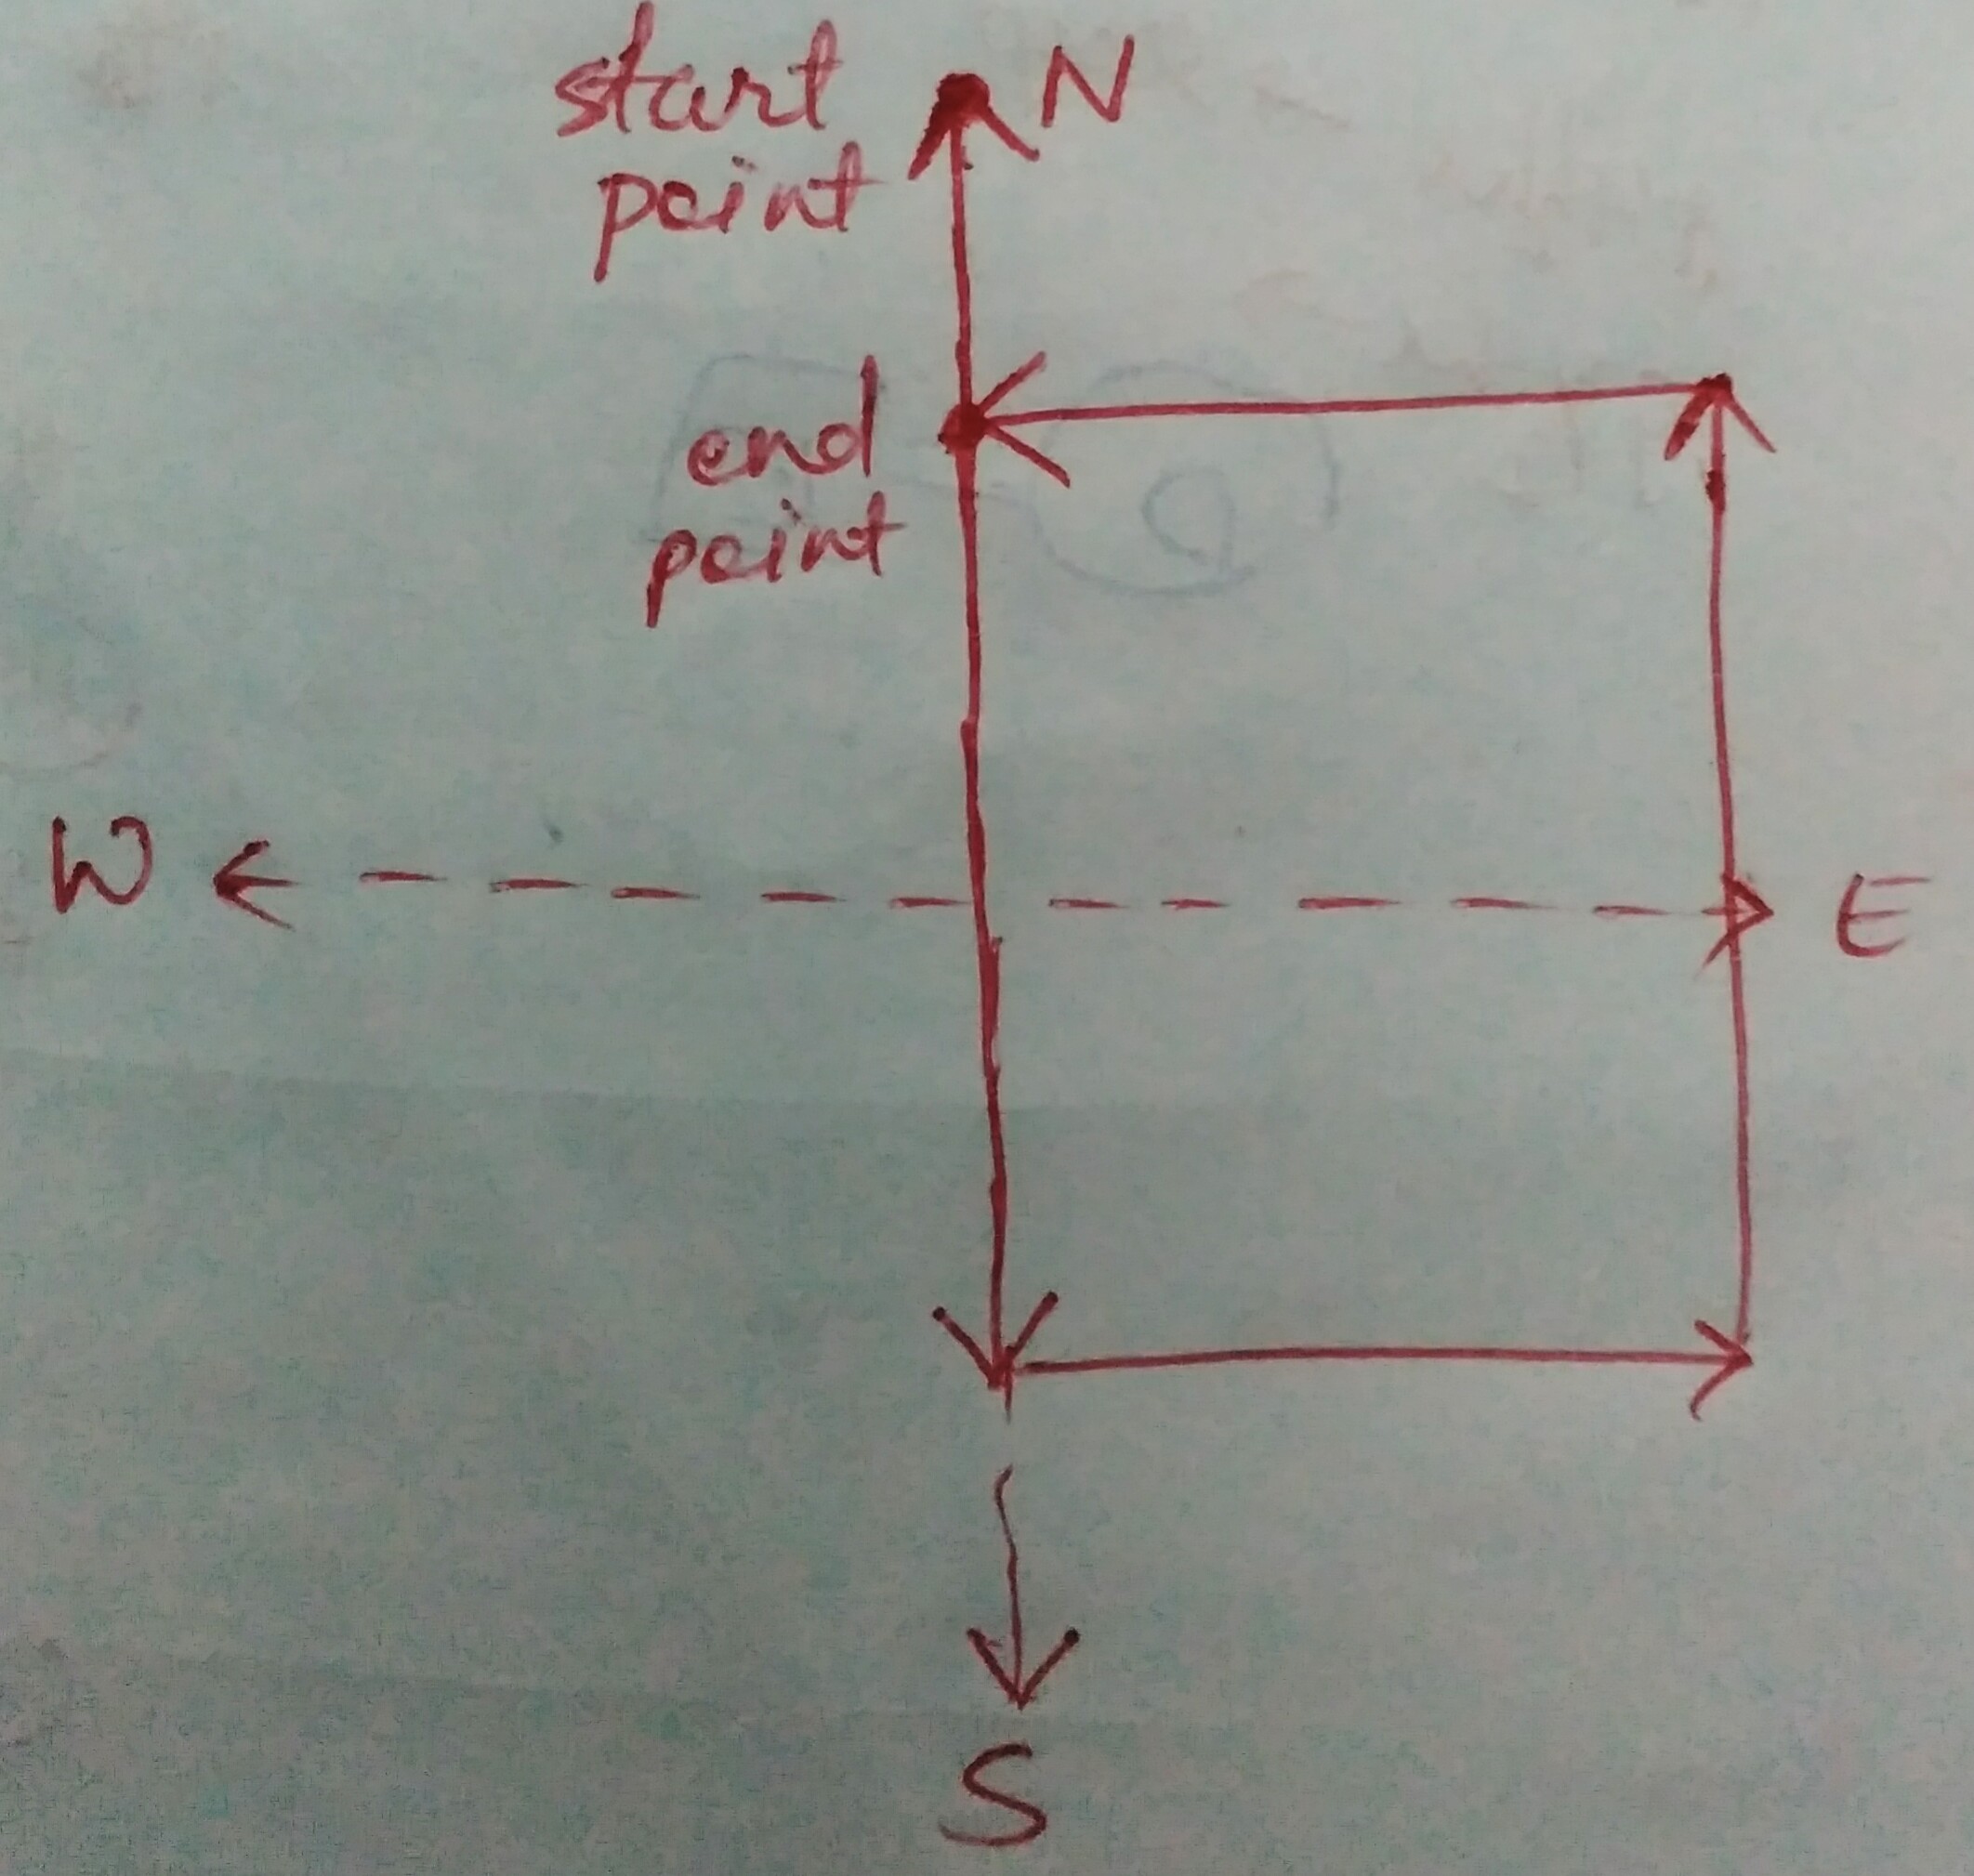 start
point
N
end
point
W
E
S